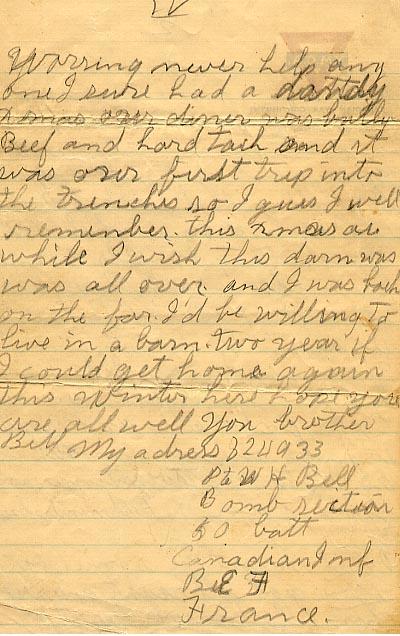 IV
Worring never help any
one I sure had a dandy
xmas our diner was bully
Beef and hard tack and it
was our first trip into
the trenches so I gues I well
remember. this xmas aw
while I wish this darn was
was all over. and I was back
on the far. I'd be willing to
live in a barn. two year if
I could get home again
this winter here hope you
are all well You brother
Bell My adress 224933
Pte W H Bell
Bomb section
50 batt
Canadian Inf
B E F
France.